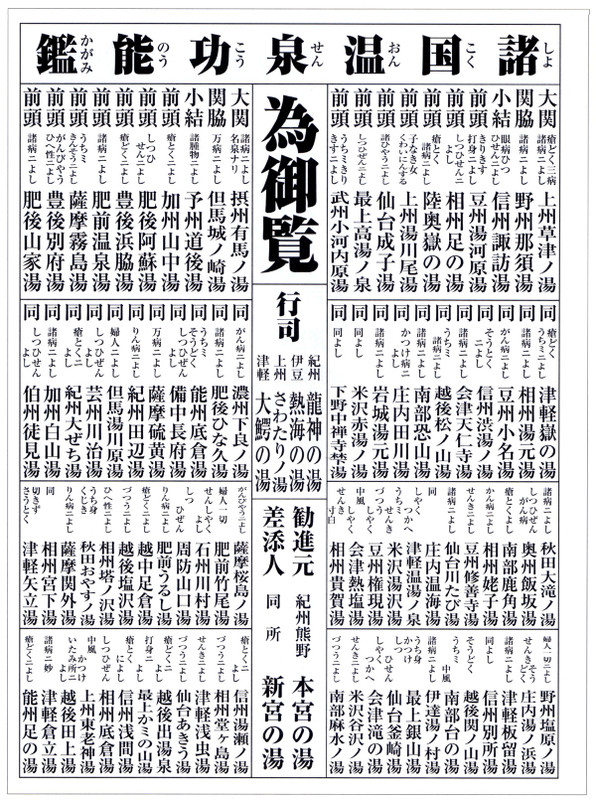 諸国温泉功能鑑
しよ こく おん せん こう のう かがみ
大関 瘡どく三病諸病ニよし 上州草津ノ湯
関脇 諸病ニよし 野州那須ノ湯
小結 眼病ひつひせんニよし 信州諏訪ノ湯
前頭 きりきす打身ニよし 豆州湯河原湯
前頭 しつひせんニよし 相州足の湯
前頭 諸病ニよし瘡とく 陸奥嶽の湯
前頭 子なき女くわいにんする 上州湯川尾湯
前頭 諸ひやうニよし 仙台成子湯
前頭 しつひぜんニよし 最上高湯ノ泉
前頭 うちミきりきすニよし 武州小河内原湯
為御覧
大関 諸病ニよし名泉ナリ 摂州有馬ノ湯
関脇 万病ニよし 但馬城ノ崎湯
小結 諸腫物ニよし 予州道後湯
前頭 瘡とくニよし 加州山中湯
前頭 しつひせんニよし 肥後阿蘇湯
前頭 瘡どくニよし 豊後浜脇湯
前頭 諸病ニよし 肥前温泉湯
前頭 うちミきんそうニよし 薩摩霧島湯
前頭 がんびやうひへ性ニよし 豊後別府湯
前頭 諸病ニよし 肥後山家湯
同 瘡どくうちミニよし 津軽嶽の湯
同 諸病ニよし 相州湯元湯
同 がん病ニよし 豆州小名湯
同 そうとくニよし 信州渋湯ノ湯
同 諸病ニよし 会津天仁寺湯
同 うちミ 越後松の山湯
同 諸病ニよし 南部恐山湯
同 かつけ病ニよし 庄内田川湯
同 諸病ニよし 岩城湯元湯
同 同よし 米沢赤湯ノ湯
同 同よし 下野中禅寺湯
行司
紀州 龍神の湯
伊豆 熱海の湯
上州 さわたりノ湯
津軽 大鰐の湯
同 がん病ニよし 濃州下良ノ湯
同 諸病ニよし 肥後ひな久湯
同 うちミそうどくよし 能州底倉湯
同 しつひぜんニよし 備中長府湯
同 万病ニよし 薩摩硫黄湯
同 りん病ニよし 紀州田辺湯
同 婦人ニよし 但馬湯川原湯
同 しつひぜんよし 芸州川治湯
同 瘡とくニよし 紀州大ぜち湯
同 諸病ニよし 加州白山湯
同 しつひせんよし 伯州徒見湯
しつひせんよし 秋田大滝ノ湯
諸病ニよしがん病 奥州飯坂湯
瘡とくよし 南部鹿角湯
かん病ニよし 相州姥子湯
せんきニよし 豆州修善寺湯
諸病ニよし 仙台川たび湯
同 庄内温海湯
しやくつかへ 津軽温湯ノ泉
うちミせんき 米沢湯沢湯
づつう 豆州権現湯
中風しやく 会津熱塩湯
せんき寸白 相州貴賀湯
勧進元 紀州熊野 本宮の湯
差添人 同所 新宮の湯
がんびやうニよし 薩摩桜島ノ湯
婦人一切 肥前竹尾湯
せんしやくニよし 石州川村湯
しつひぜん 周防山口湯
りん病ニよし 肥前うるし湯
瘡どくニよし 越中足倉湯
づつうニよし 越後塩沢湯
ひへ性ニよし 相州塔ノ沢湯
うち身くじき 秋田おやす湯
りん病ニよし 薩摩関外湯
同 相州宮下湯
切きずさうとく 津軽矢立湯
婦人一切ニよし 野州塩原ノ湯
せんきそうどくニよし 庄内湯ノ浜湯
諸病ニよし 津軽板留湯
同よし 信州別所湯
そうどく 越後関ノ山湯
うちミ 南部台の湯
中風 伊達湯ノ村湯
諸病ニよし 最上銀山湯
うち身かつけ 仙台釜崎湯
ひせんつかへ 会津滝の湯
せんきニよし 米沢谷沢ノ湯
づつうニよし 南部麻水ノ湯
瘡とくニよし 信州湯瀬ノ湯
づつうニよし 相州堂ヶ島湯
せんきニよし 津軽浅虫湯
づつうニよし 仙台あきう湯
瘡どくニよし 越後出湯泉
打身ニよし 最上かミの山湯
瘡とくによし 信州浅間湯
しつひぜん 相州底倉湯
中風かつけよし 上州東老神湯
いたみ所ニよし 越後田上湯
諸病ニ妙 津軽倉立湯
瘡どくニよし 能州足の湯